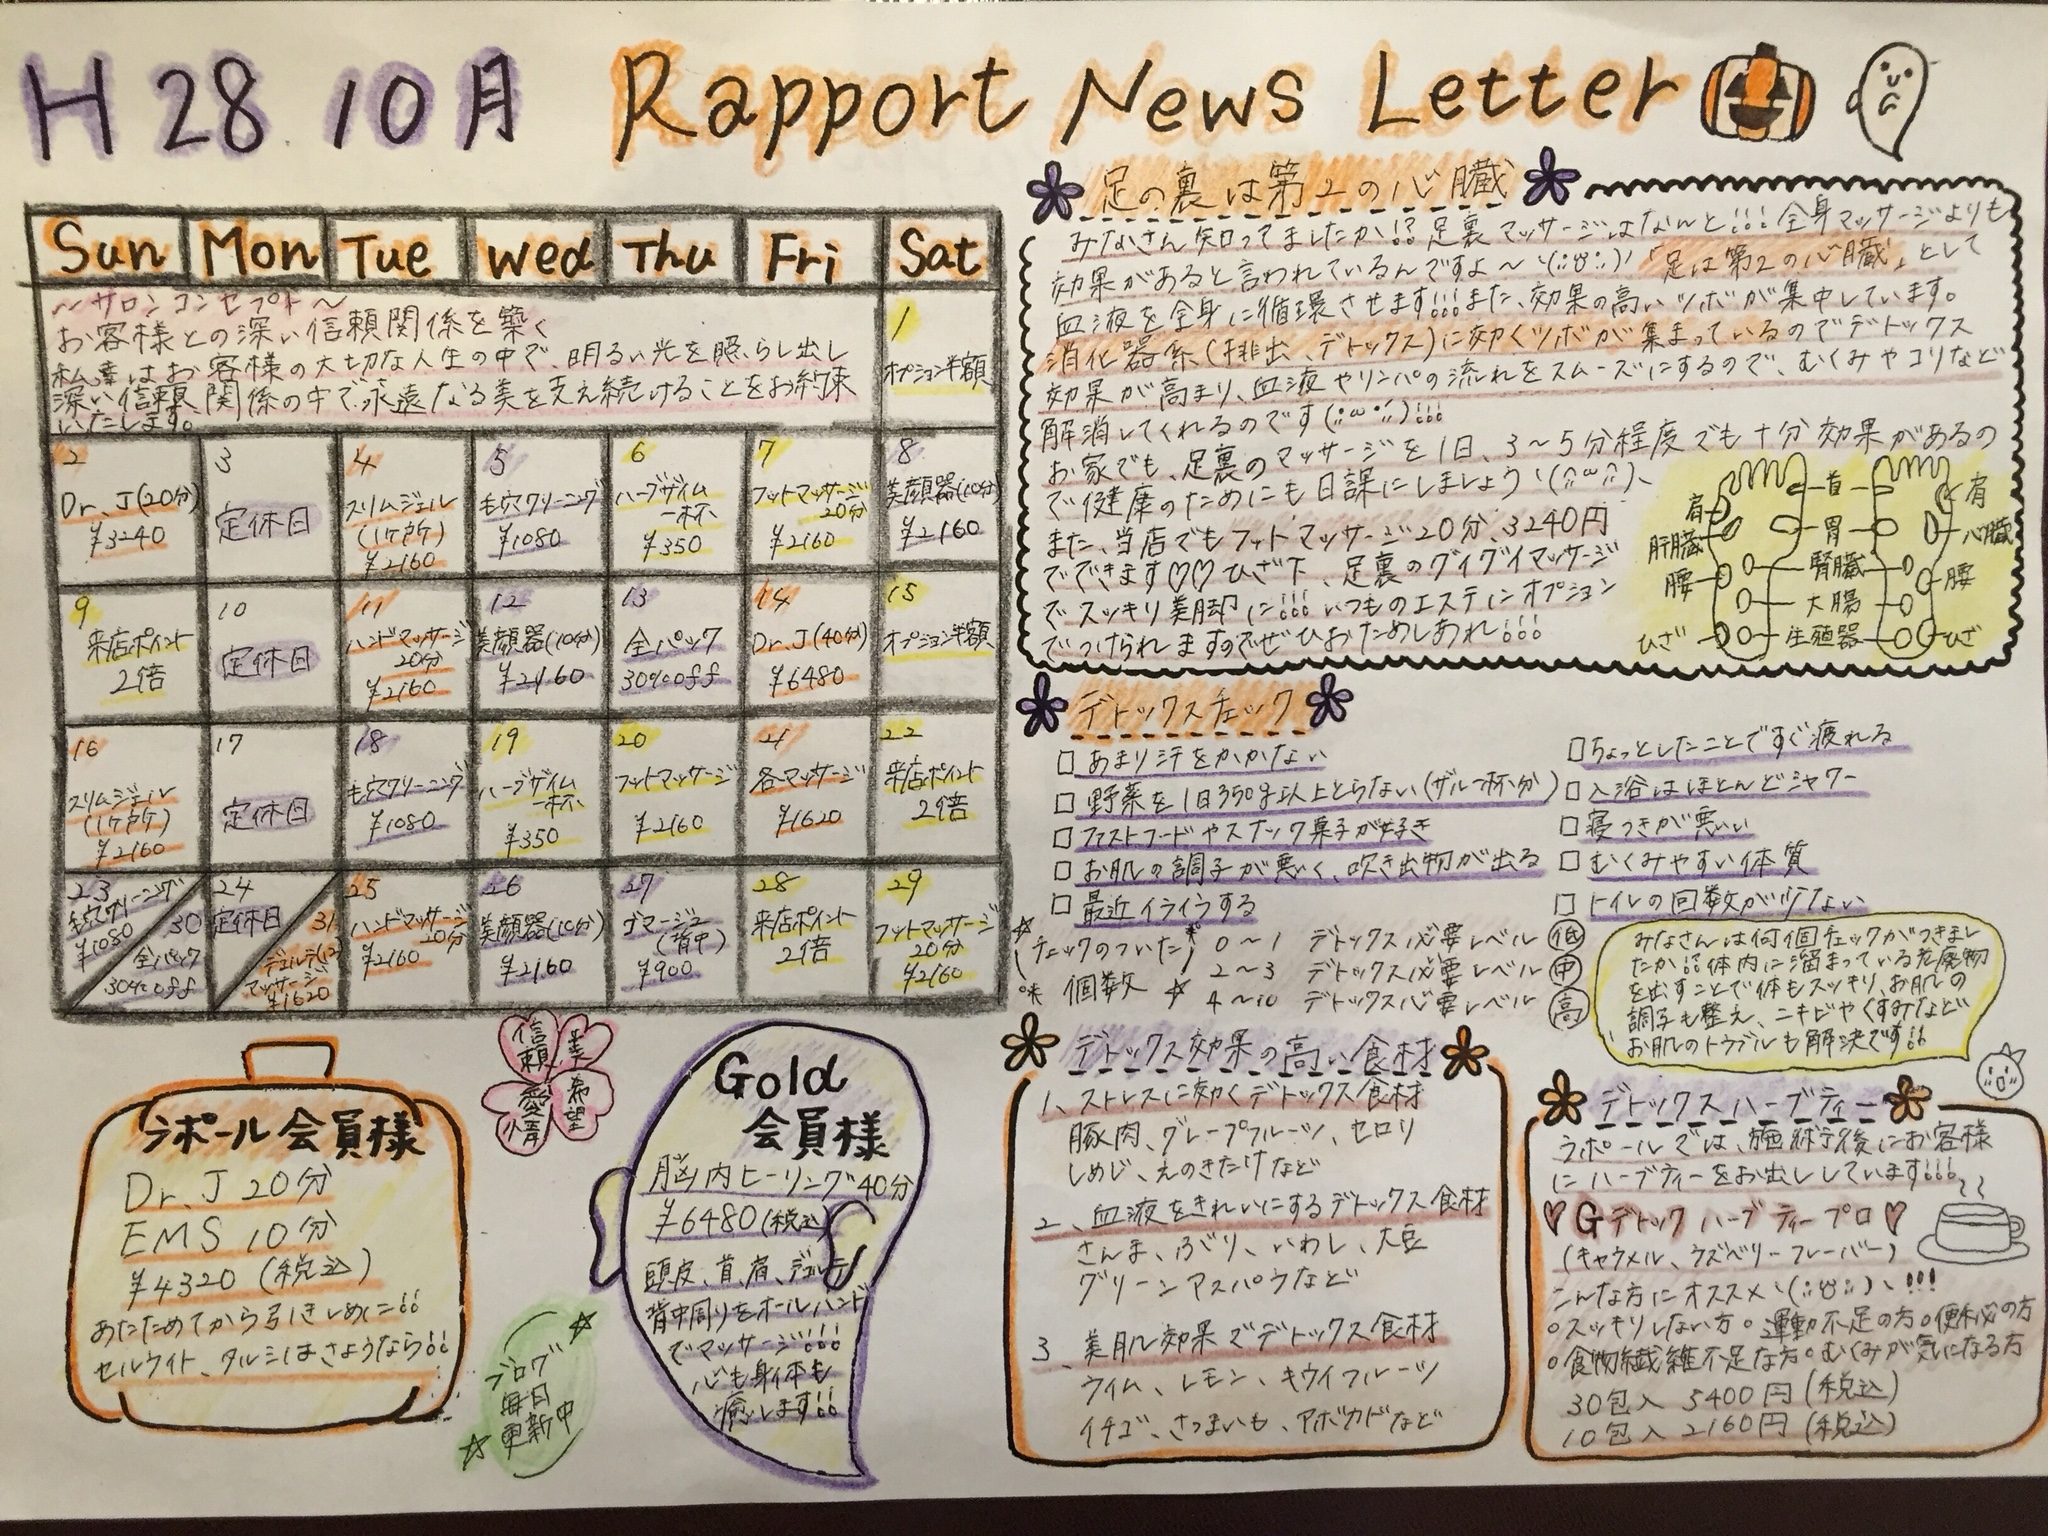 H 28 10月 Rapport News Letter
Sun Mon Tue Wed Thu Fri Sat
～サロンコンセプト～
お客様との深い信頼関係を築く
私達はお客様の大切な人生の中で、明るい光を照らし出し
深い信頼関係の中で、永遠なる美を支え続けることをお約束
いたします。
1
オプション半額
2
Dr.J(20分)
¥3240
3
定休日
4
スリムジェル
(1ヶ所)
¥2160
5
毛穴クリーニング
¥1080
6
ハーブザイム
一杯
¥350
7
フットマッサージ
20分
¥2160
8
美顔器(10分)
¥2160
9
来店ポイント
2倍
10
定休日
11
ハンドマッサージ
20分
¥2160
12
美顔器(10分)
¥2160
13
全パック
30%off
14
Dr.J(40分)
¥6480
15
オプション半額
16
スリムジェル
(1ヶ所)
¥2160
17
定休日
18
毛穴クリーニング
¥1080
19
ハーブザイム
一杯
¥350
20
フットマッサージ
¥2160
21
各マッサージ
¥1620
22
来店ポイント
2倍
23
毛穴クリーニング
¥1080
30
全パック
30%off
24
定休日
31
デコルテ(12)
マッサージ
¥1620
25
ハンドマッサージ
20分
¥2160
26
美顔器(10分)
¥2160
27
ゴマージュ
(背中)
¥900
28
来店ポイント
2倍
29
フットマッサージ
20分
¥2160
足の裏は第2の心臓
みなさん知ってましたか!?足裏マッサージはなんと!!!全身マッサージよりも
効果があると言われているんですよ～ 「足は第2の心臓」として
血液を全身に循環させます!!!また、効果の高いツボが集中しています。
消化器系(排出、デトックス)に効くツボが集まっているのでデトックス
効果が高まり、血液やリンパの流れをスムーズにするので、むくみやコリなど
解消してくれるのです(;'ω';)!!!
お家でも、足裏のマッサージを1日、3～5分程度でも十分効果があるの
で健康のためにも日課にしましょう
また、当店でもフットマッサージ20分、3240円
でできます♡♡ひざ下、足裏のグイグイマッサージ
でスッキリ美脚に!!!いつものエステにオプション
でつけられますのでぜひおためしあれ!!!
肩 首 肩
肝臓 胃 心臓
腰 腎臓 腰
大腸
ひざ 生殖器 ひざ
デトックスチェック
□あまり汗をかかない
□野菜を1日350g以上とらない(ザル一杯分)
□ファストフードやスナック菓子が好き
□お肌の調子が悪く、吹き出物が出る
□最近イライラする
□ちょっとしたことですぐ疲れる
□入浴はほとんどシャワー
□寝つきが悪い
□むくみやすい体質
□トイレの回数が少ない
チェックのついた
個数
0～1 デトックス必要レベル 低
2～3 デトックス必要レベル 中
4～10 デトックス必要レベル 高
みなさんは何個チェックがつきまし
たか!?体内に溜まっている老廃物
を出すことで体もスッキリ、お肌の
調子も整え、ニキビやくすみなど
お肌のトラブルも解決です!!
ラポール会員様
Dr.J 20分
EMS 10分
¥4320(税込)
あたためてから引きしめに!!
セルライト、タルミはさようなら!!
信頼
美
希望
愛情
ブログ
毎日
更新中
Gold
会員様
脳内ヒーリング40分
¥6480(税込)
頭皮、首、肩、デコルテ
背中周りをオールハンド
でマッサージ!!!
心も身体も
癒します!!
デトックス効果の高い食材
1、ストレスに効くデトックス食材
豚肉、グレープフルーツ、セロリ
しめじ、えのきたけなど
2、血液をきれいにするデトックス食材
さんま、ぶり、いわし、大豆
グリーンアスパラなど
3、美肌効果でデトックス食材
ライム、レモン、キウイフルーツ
イチゴ、さつまいも、アボカドなど
デトックスハーブティー
ラポールでは、施術後にお客様
にハーブティーをお出ししています!!!
♥Gデトックハーブティープロ♥
(キャラメル、ラズベリーフレーバー)
こんな方にオススメ!!!
○スッキリしない方○運動不足の方○便秘の方
○食物繊維不足な方○むくみが気になる方
30包入 5400円(税込)
10包入 2160円(税込)